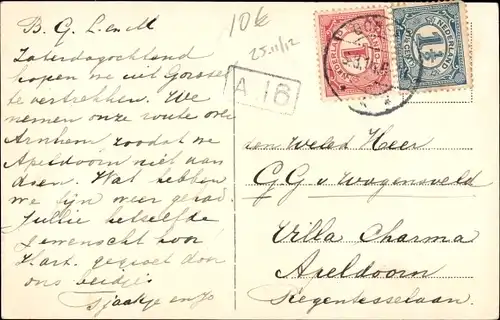 B. G. L. en M
Zaterdagochtend
hopen we uit Gorssel
te vertrekken. We
nemen onze route over
Arnhem zoodat we
Apeldoorn niet aan
doen. Wat hebben
we fijn weer gehad.
Jullie hetzelfde
gewenscht hoor
Hart. gegroet door
ons beidjes
Sjaakje en Jo
10 k
25.11/12
A 1B
NEDERLAND
1
NEDERLAND
1½
den Weled Heer
G G v Wagensveld
Villa Charma
Apeldoorn
Regentesselaan.